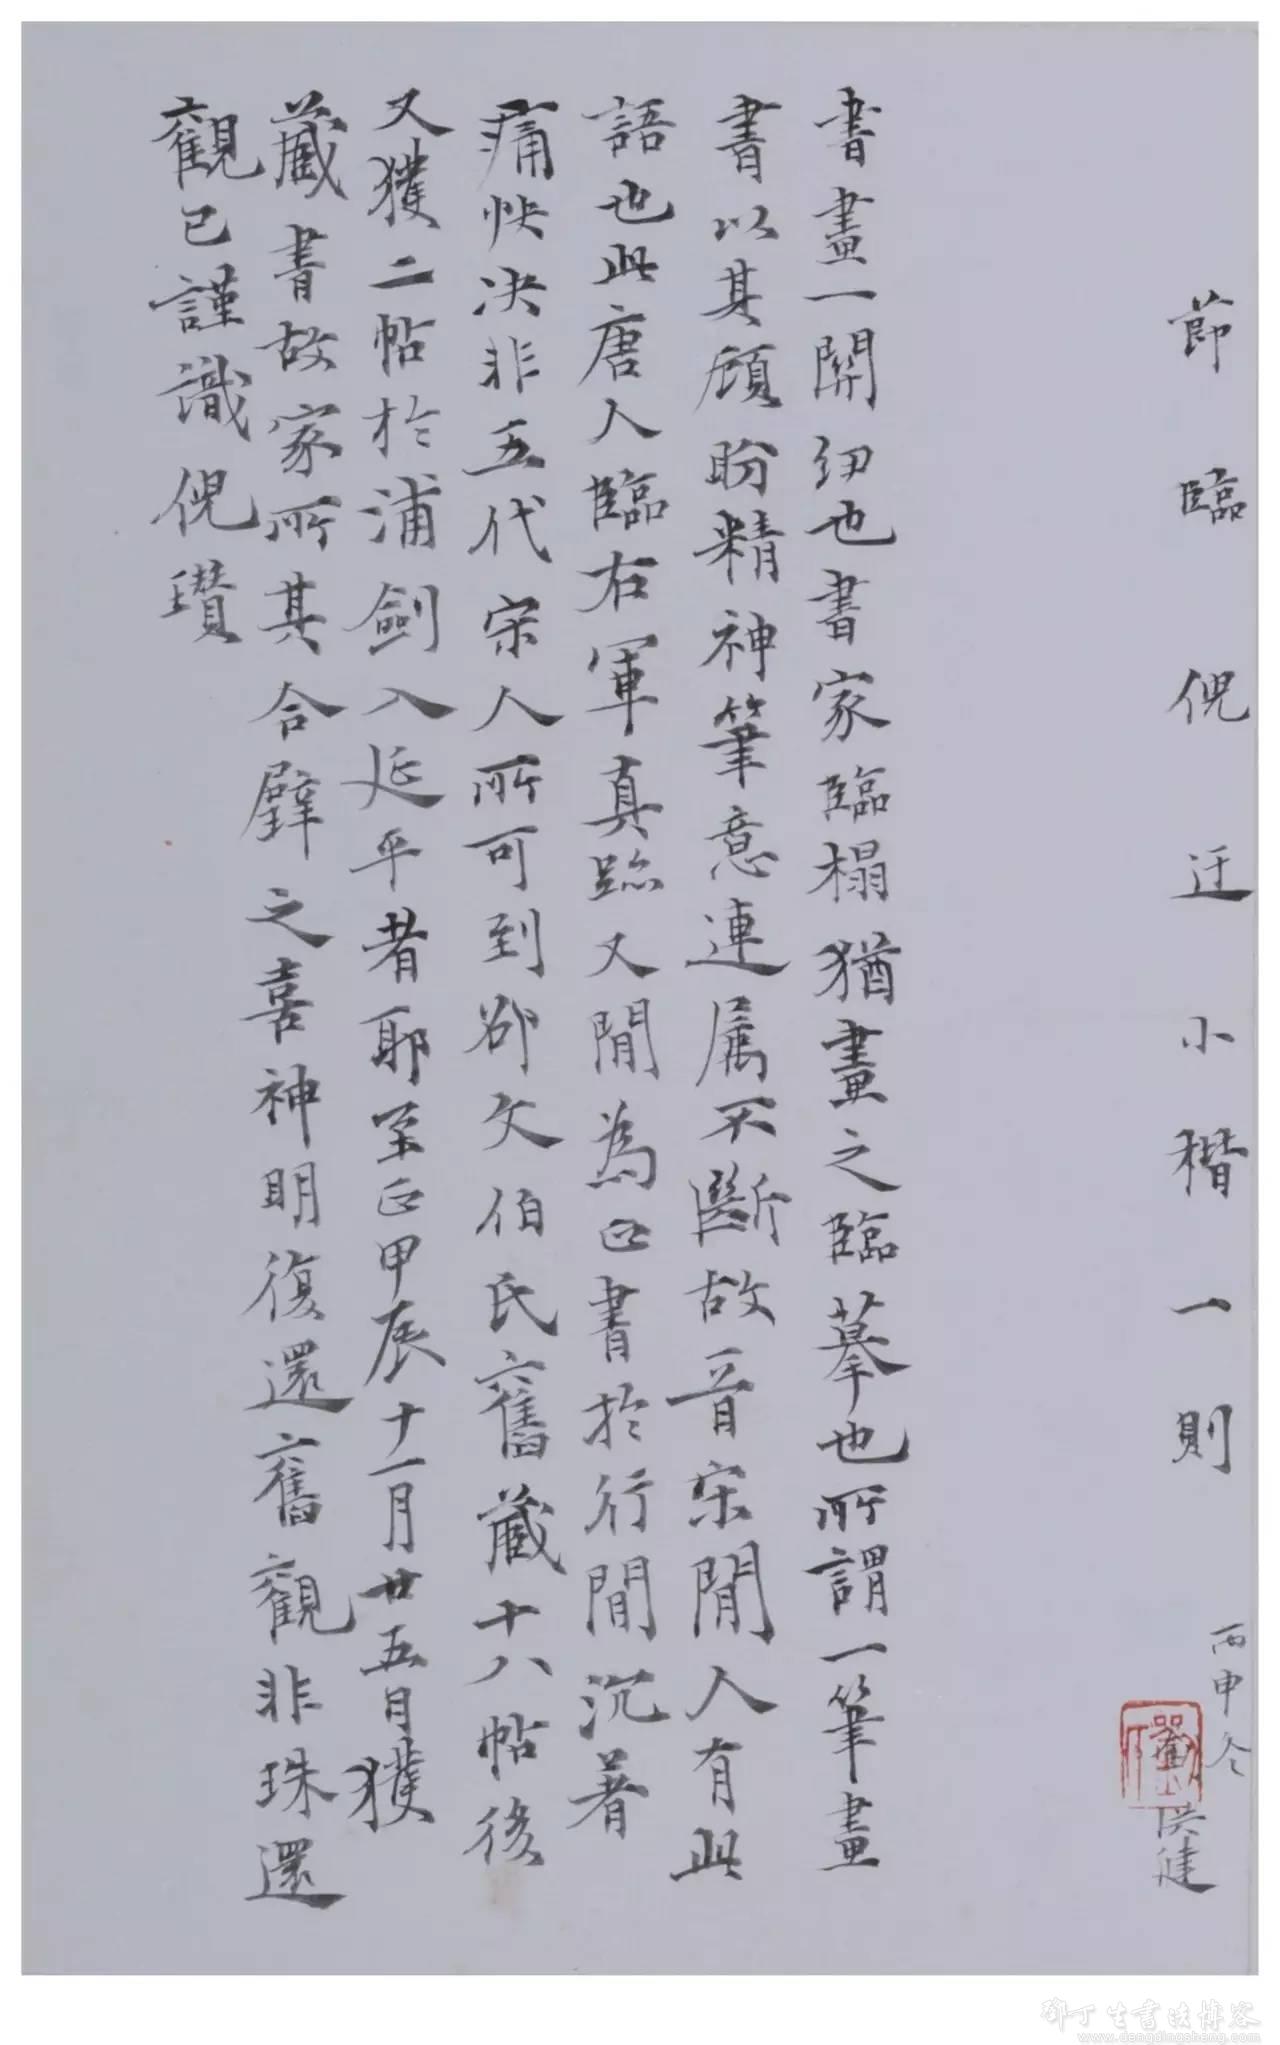 節臨倪迂小楷一則
丙申冬
洪健
書畫一關紐也書家臨榻猶畫之臨摹也所謂一筆畫
書以其顧盼精神筆意連属不斷故晉宋間人有此
語也此唐人臨右軍真跡又間為正書於行間沉著
痛快决非五代宋人所可到邵文伯氏舊藏十八帖後
又獲二帖於浦劍入延平者耶至正甲辰十一月廿五日獲
藏書故家所其合璧之喜神明復還舊觀非珠還
觀已謹識倪瓚
鄧丁生書法博客
www.dengdingsheng.com